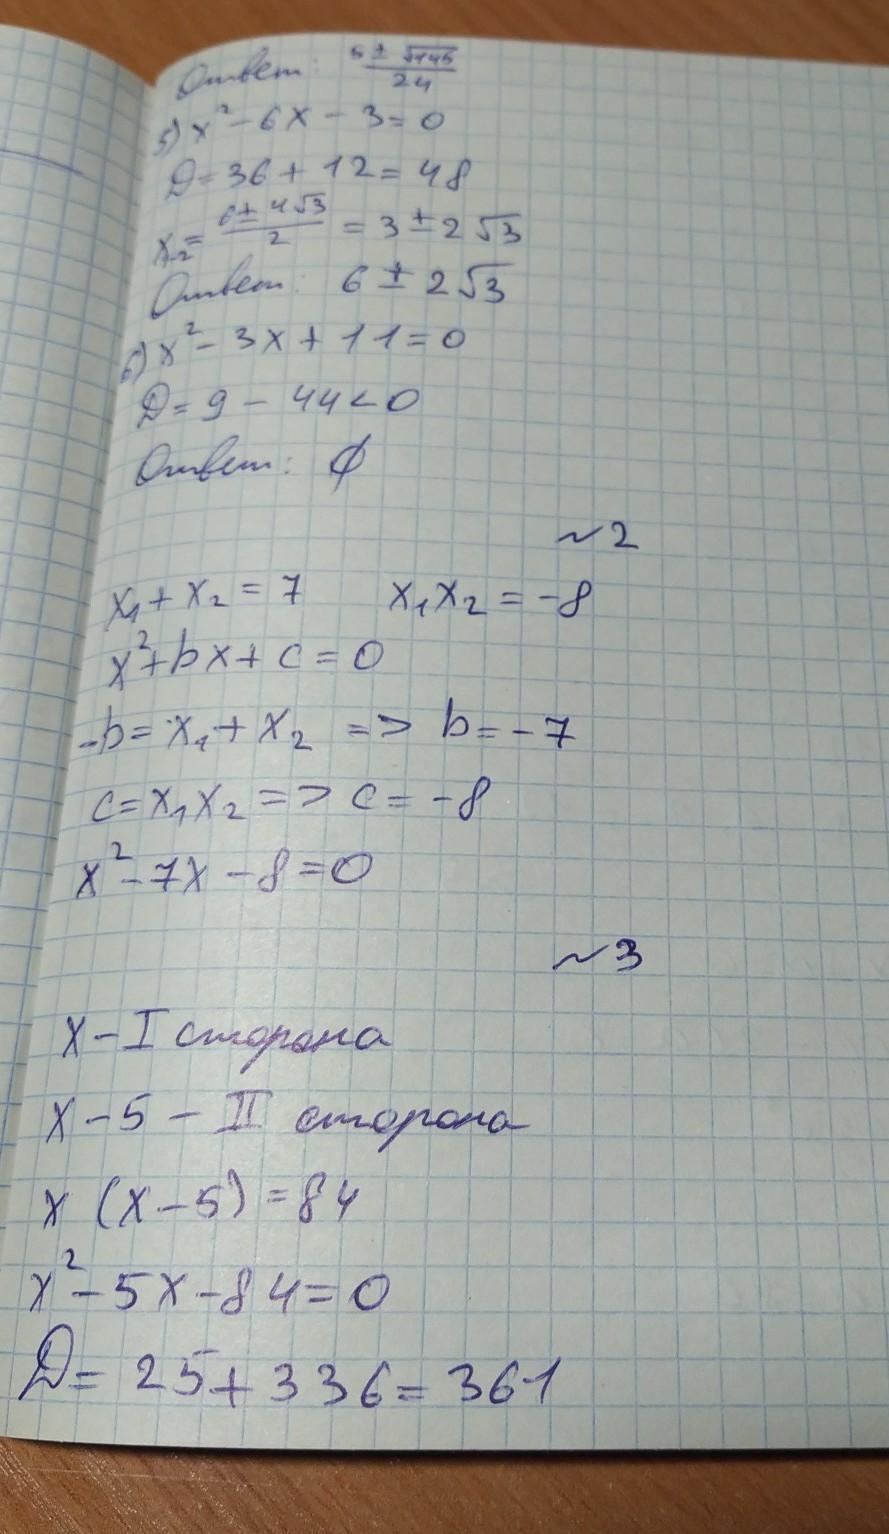 Ответ: (5 ± √145)/24
5) x² - 6x - 3 = 0
D = 36 + 12 = 48
x₂ = (6 ± 4√3)/2 = 3 ± 2√3
Ответ: 6 ± 2√3
6) x² - 3x + 11 = 0
D = 9 - 44 < 0
Ответ: ∅
~2
x₁ + x₂ = 7 x₁x₂ = -8
x² + bx + c = 0
-b = x₁ + x₂ => b = -7
c = x₁x₂ => c = -8
x² - 7x - 8 = 0
~3
x - I сторона
x - 5 - II сторона
x (x - 5) = 84
x² - 5x - 84 = 0
D = 25 + 336 = 361